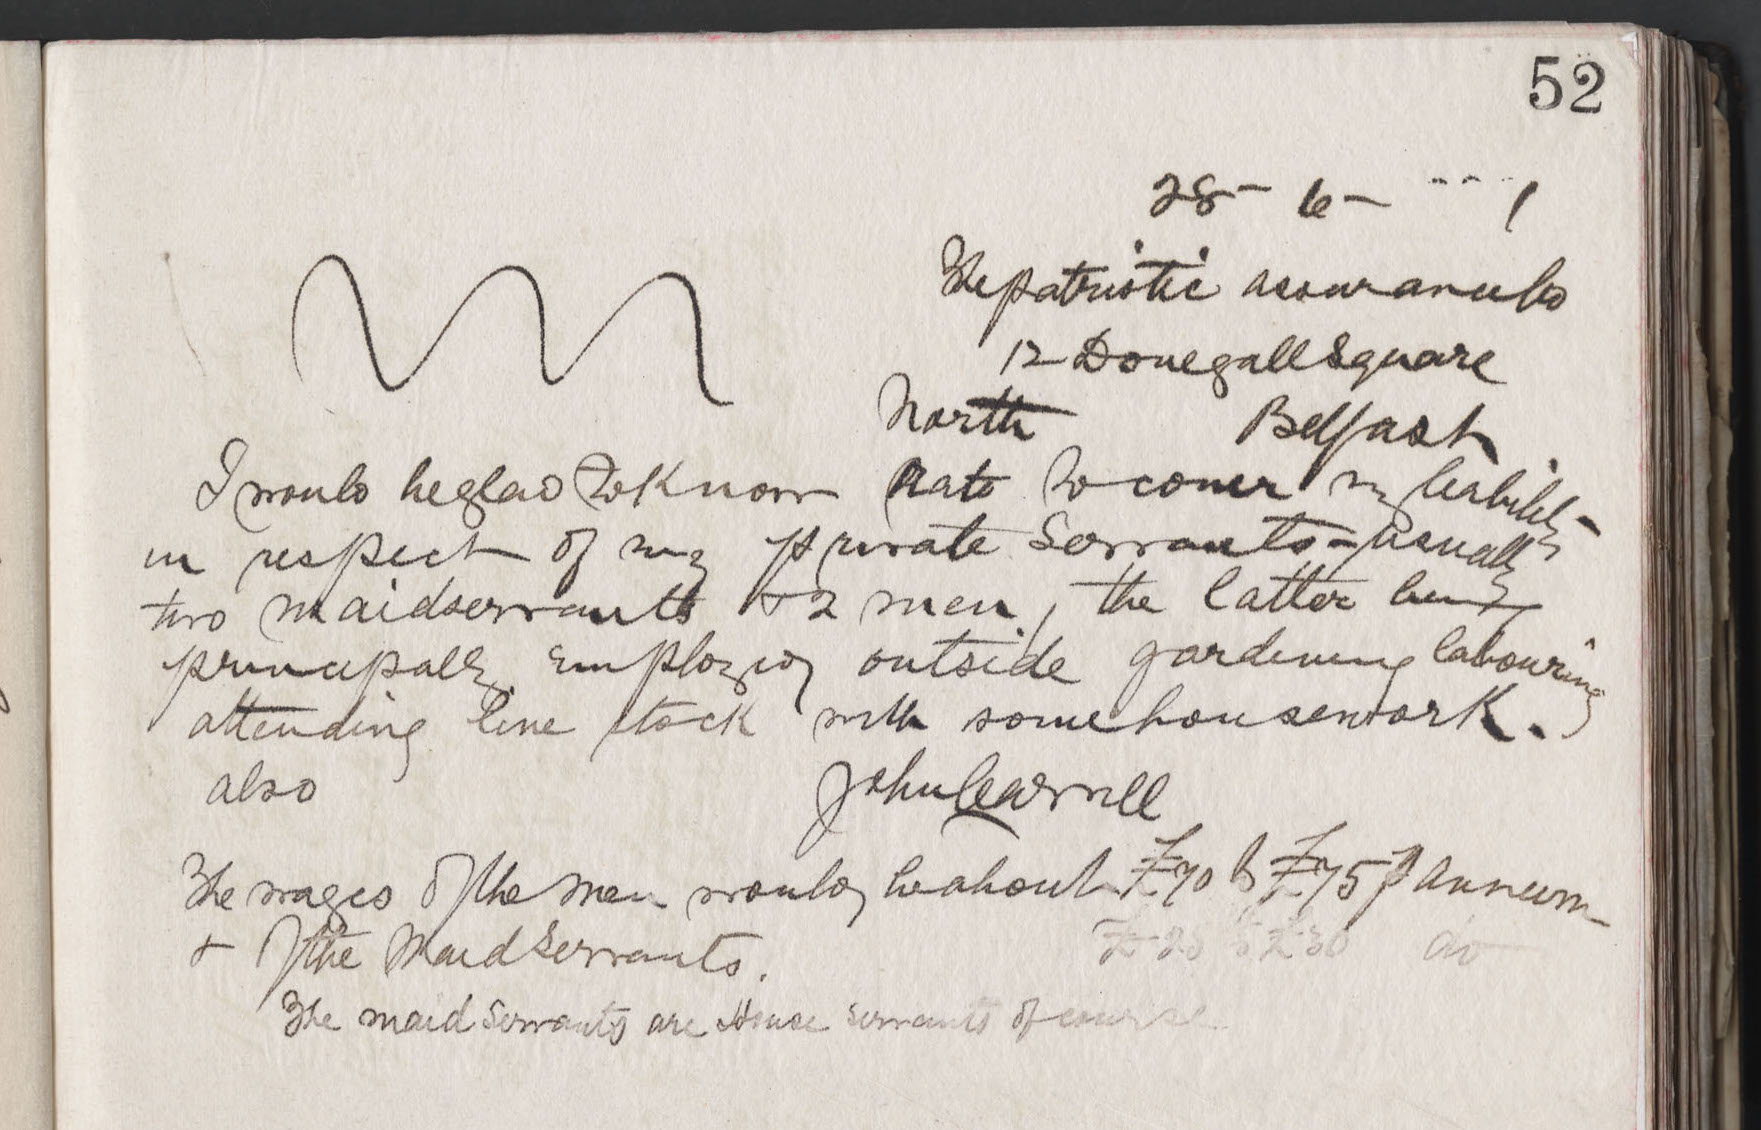 52
28 - 6 - 1
The patriotic assurance Co
12 Donegall Square
North Belfast
I would be glad to Know Rate to cover my liability
in respect of my private Servants - usually
two maidservants & 2 men, the latter being
principally employed outside gardening labouring
attending live stock with some housework.
also John
The wages of the men would be about £70 to £75 p annum
& of the Maid Servants. £25 to £30 do
The maid Servants are House servants of course